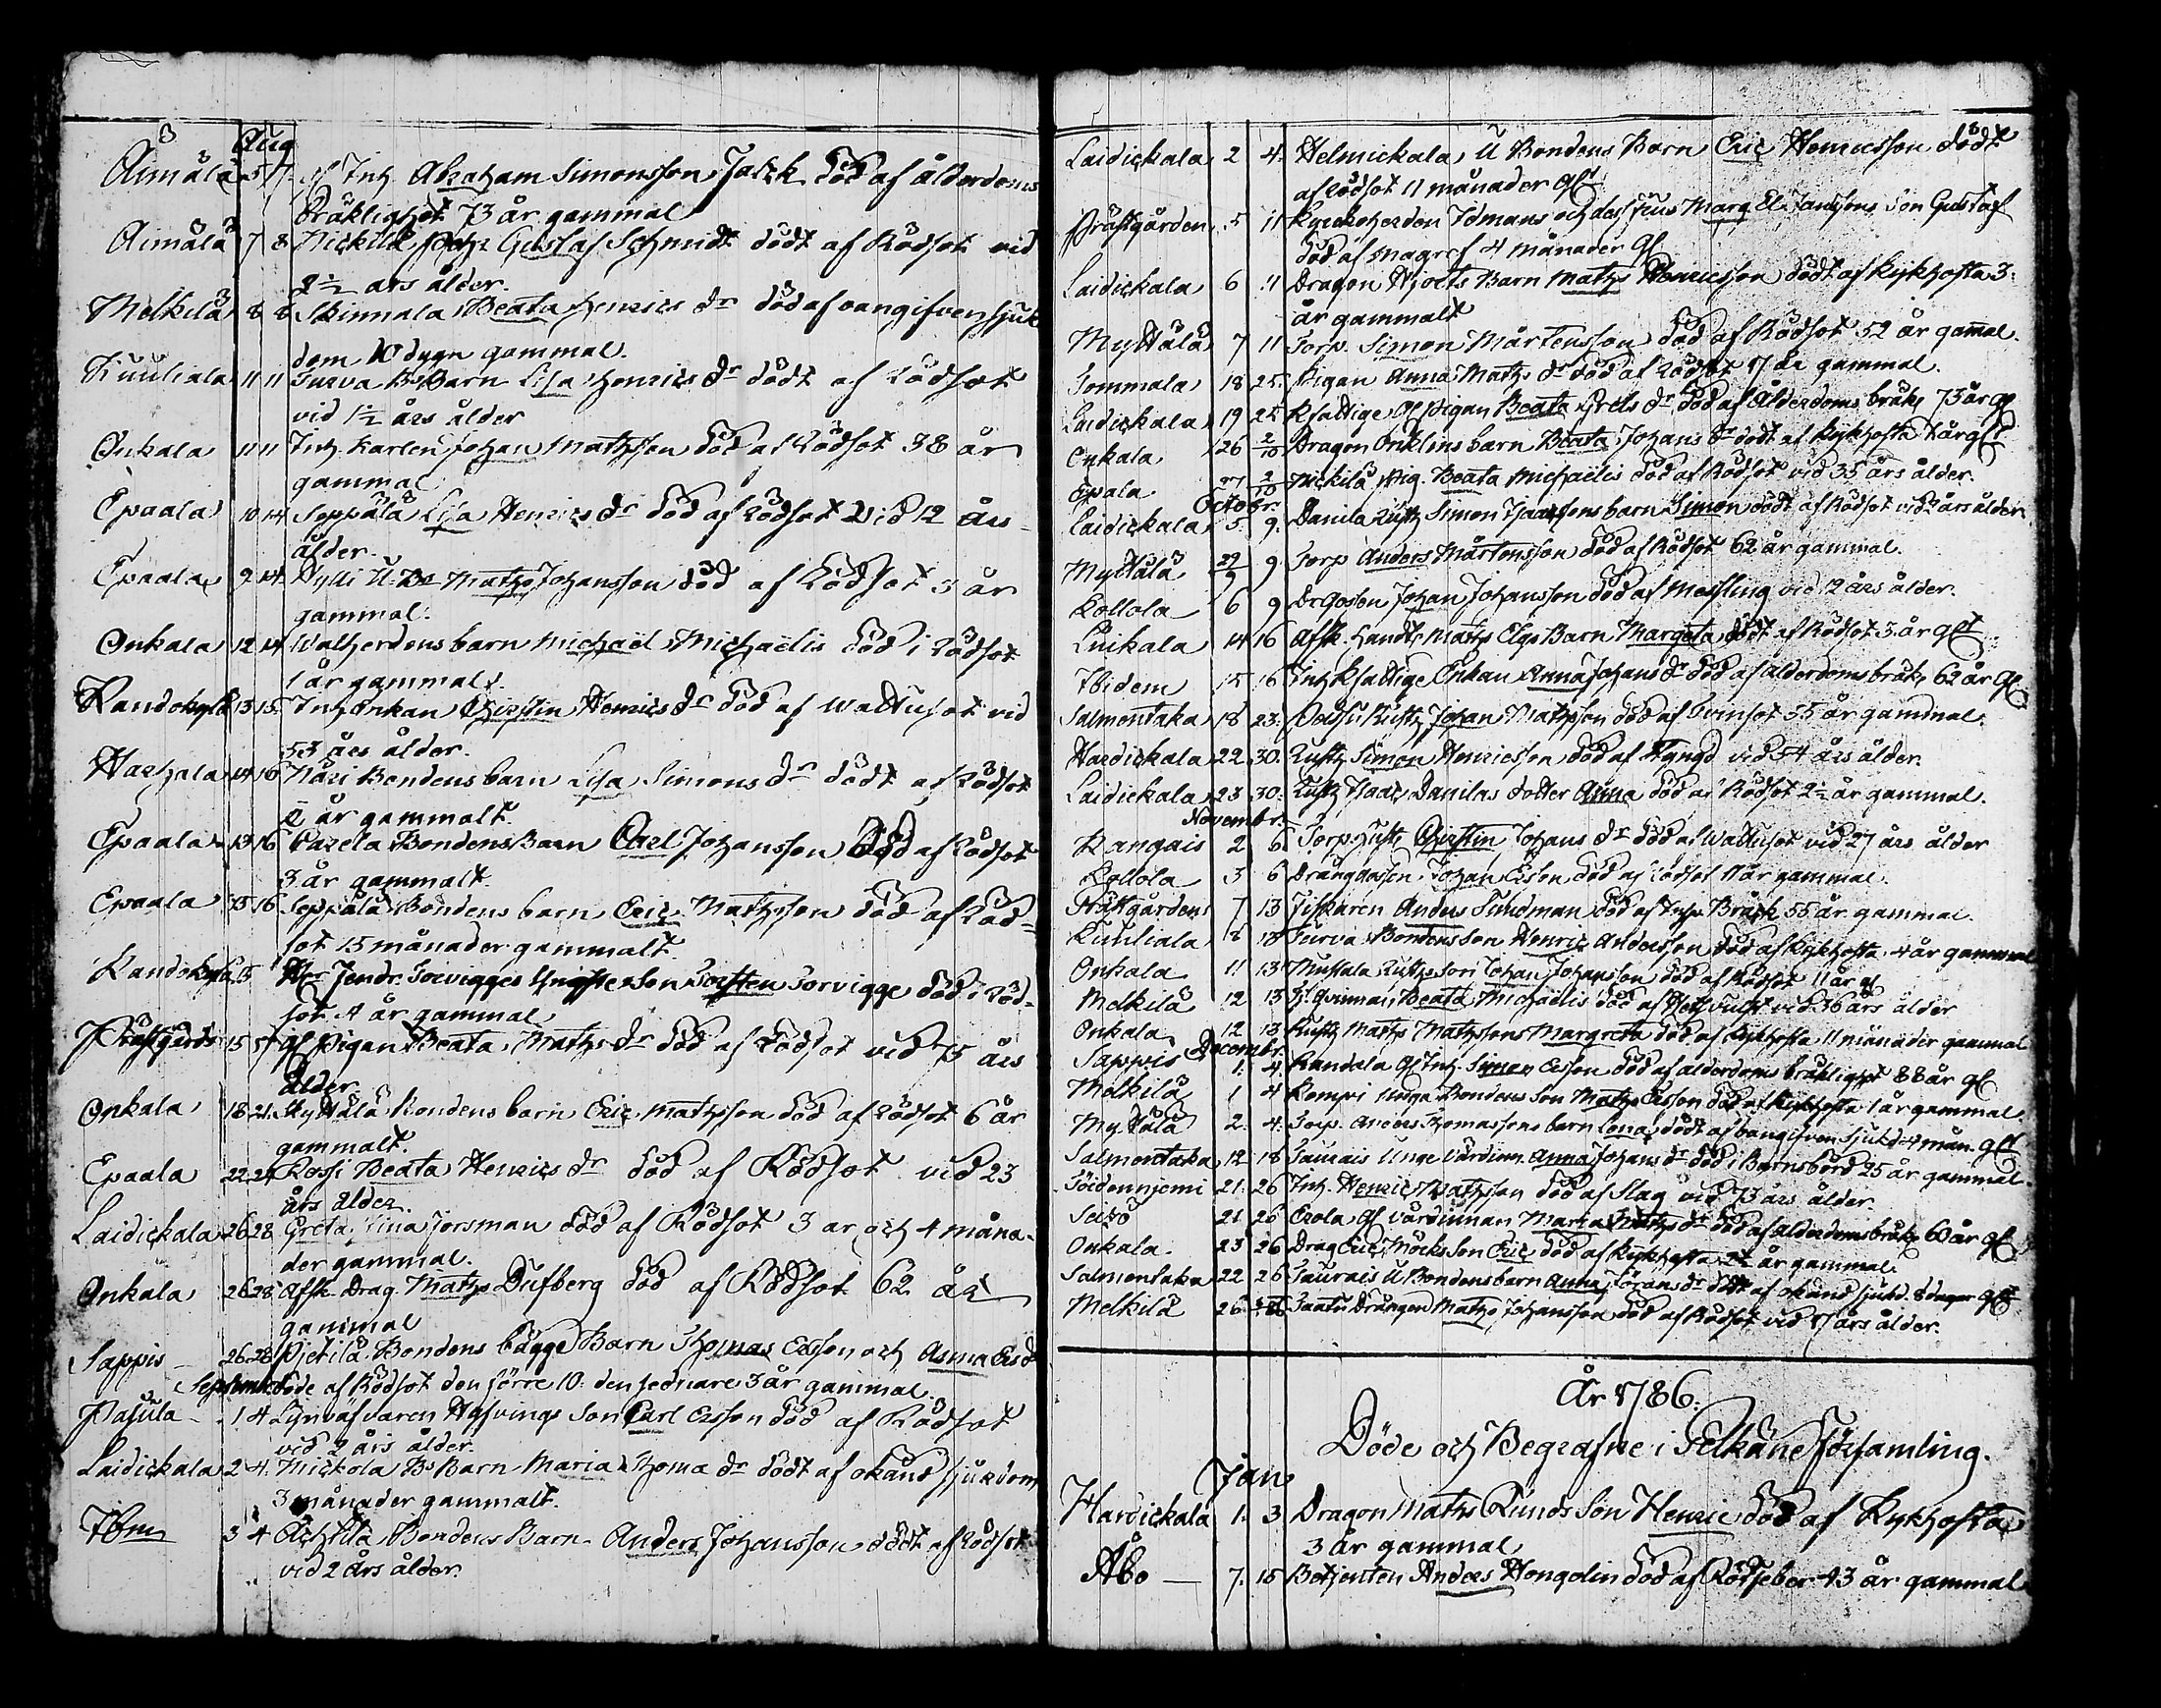 Aug
Äimälä 5 7 gl Inh. Abraham Simonsson Jack död af ålderdoms
bräklighet 73 år gammal
Äimälä 7 8 Nickilä Gustaf Schmidt dödt af Rödsot vid
2½ års ålder.
Melkilä 8 8 Skinnala Beata Henrics dr död af oangifven sjuk
dom 10 dygn gammal.
Kuuliala 11 11 Turva Bs Barn Lisa Henrics dr dödt af Rödsot
vid 1½ års ålder
Onkala 11 11 Inh. Karlen Johan Mathsson död af Rödsot 38 år
gammal
Epaala 10 14 Seppälä Lisa Henrics dr död af Rödsot vid 12 års
ålder.
Epaala 9 14 Hylli U. Bs Maths Johansson död af Rödsot 3 år
gammal.
Onkala 12 14 Walherdens barn Michaël Michaëlis död i Rödsot
1 år gammal.
Kandokylä 13 15 Inh. Enkan Christin Henrics dr död af Wattusot vid
53 års ålder.
Harhala 14 16 Näri Bondens barn Lisa Simons dr dödt af Rödsot
2 år gammalt.
Epaala 13 16 Parela Bondens Barn Carl Johansson död af Rödsot
3 år gammalt.
Epaala 15 16 Seppälä Bondens barn Eric Mathsson död af Röd=
sot 15 månader gammalt.
Kandokylä 15 Hr Fendr. Torwigges Yngste Son Torsten Torwigge död i Röd=
sot 4 år gammal
Prästgårde 15 gl Pigan Beata Maths dr död af Rödsot vid 75 års
ålder.
Onkala 18 21 Myttälä Bondens barn Eric Mathsson död af Rödsot 6 år
gammalt.
Epaala 22 24 Rossi Beata Henrics dr död af Rödsot vid 23
års ålder.
Laidickala 26 28 Greta Lina Forsman död af Rödsot 3 år och 4 måna-
der gammal.
Onkala 26 28 Afsk. Drag. Maths Dufberg död af Rödsot 62 år
gammal
Sappis 26 28 Pjetilä Bondens bägge Barn Thomas Ersson och Anna Ers d
Septembr. döde af Rödsot den förre 10. den sednare 3 år gammal.
Pasula 1 4 Lynväfvaren Hafvings Son Carl Ersson död af Rödsot
vid 2 års ålder.
Laidickala 2 4 Mickola Bs Barn Maria Thoma dr dödt af okänd sjukdom
3 månader gammalt.
Ibm 3 4 Achtila Bondens Barn Anders Johansson dödt af Rödsot
vid 2 års ålder.
Laidickala 2 4. Helmickala U Bondens Barn Eric Henricsson dödt
af Rödsot 11 månader glt
Prästgården 5 11 Kyrckoherden Idmans och dess frus Marg El. Son Gustaf
död af magref 4 månader gl
Laidickala 6 11 Dragon Hjorts Barn Maths Henricsson dödt af Kykhosta 3
år gammalt
Myttälä 7 11 Torp. Simon Mårtensson död af Rödsot 52 år gammal.
Tommala 18 25. Pigan Anna Maths dr död af Rödsot 17 år gammal.
Laidickala 19 25 Rfattige gl Pigan Beata Grels dr död af Ålderdoms bräkl 73 år gl
Onkala 26 2/10 Dragon Onklins barn Beata Johans dr dödt af Kykhosta år glt
Epala 27 2/10 Nickilä Pig. Beata Michaëlis död af Rödsot vid 35 års ålder.
Octobr.
Laidickala 5. 9. Danila Rusth Simon Isacssons barn Simon dödt af Rödsot vid års ålder
Myttälä 29/9 9 Torp Anders Mårtensson död af Rödsot 62 år gammal.
Kollola 6 9 Drgossen Johan Johansson död af Mässling vid 12 års ålder.
Luikala 14 16 Afsk. Landtr. Maths Elgs Barn Margeta dödt af Rödsot 3. år glt
Ibidem 15 16 Inh Rfattige Enkan Anna Johans dr död af ålderdoms bräkl 62 år gl
Salmentaka 18 23. Rusth Johan Mathsson död af Tvinsot 55 år gammal.
Hardickala 22 30. Rusth Simon Henricsson död af Styngd vid 54 års ålder.
Laidickala 23 30. Rusth Isaac Danilas dotter Anna död af Rödsot 2½ år gammal.
Novembr.
Kangais 2 6 Torp. Hustr Christin Johans dr död af Wattusot vid 27 års ålder
Kollola 3 6 Dränggossen Johan Ersson död af Rödsot 11 år gammal.
Prästgården 7 13 Fiskaren Anders Sundman död af Bräck 55 år gammal.
Kuuliala 8 13 Turva Bondens Son Henric Andersson död af Kykhosta 4 år gammal
Onkala 11 13 Mustala Rusths Son Johan Johansson död af Rödsot 11 år gl
Melkilä 12 13 Beata Michaëlis död af vid 36 års ålder
Onkala 12 13 Rusth Maths Mathssons Margreta död af Kykhosta 11 månader gammal
Decembr.
Sappis 1. 4. Kandala gl Inh. Simon Ersson död af ålderdoms bräklight 88 år gl
Melkilä 1 4 Kompri Unga Bondens Son Maths Ersson död af Kykhosta 1 år gammal.
Myttälä 2. 4. Torp. Anders Thomassons barn Lena dödt af oangifven sjukd 4 mån. glt
Salmentaka 12 18 Taurais Unge Värdinn. Anna Johans dr död i Barnsbörd 25 år gammal.
Töidennjemi 21. 26 Inh. Henric Mathsson död af Slag vid 73 års ålder.
21 26 Erola gl värdinnan Maria Maths dr död af ålderdoms bräkl 60 år gl
Onkala. 23 26 Drag Eric Möcks Son Eric död af Kykhosta 2½ år gammal.
Salmentaka 22 26 Taurais U Bondens barn Anna Görans dr dödt af okänd sjukd 8 dagar glt
Melkilä 26 Drängen Maths Johansson död af Rödsot vid 17 års ålder.
År 1786.
Döde och Begrafne i Pelkäne Församling.
Jan
Hardickala 1. 3 Dragon Maths Lunds Son Henric död af Kykhosta
3 år gammal
Åbo — 7. 15 Betjenten Anders Hongelin död af Rötfeber 43 år gammal